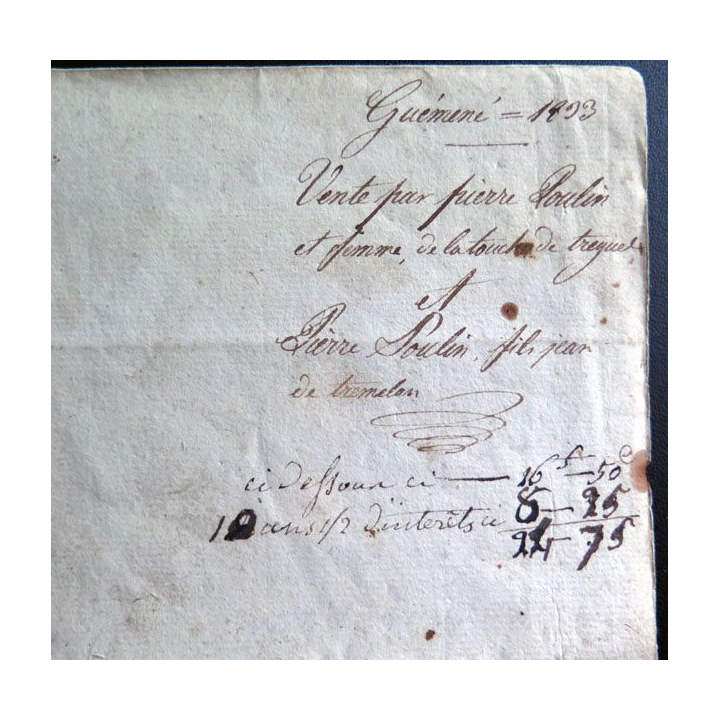 Guémené = 1893
Vente par pierre Poulin
et femme, de la touche de treguel
et
Pierre Poulin, fils jean
de tremelan
ci dessour ci — 16 f — 50 c
10 ans 1/2 d'interêts ci 8 — 25
24 — 75